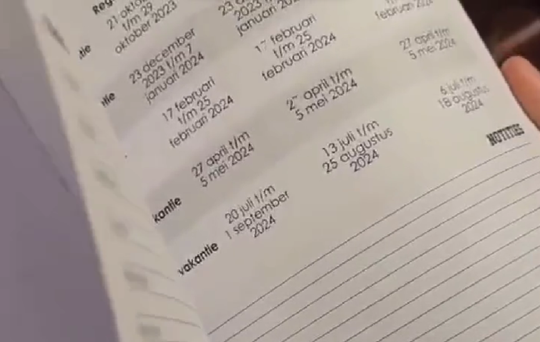 21 oktober
t/m 29
oktober 2023
23 december
2023 t/m 7
januari 2024
januari 2024
17 februari
t/m 25
februari 2024
februari
t/m 25
februari 2024
februari 2024
27 april t/m
5 mei 2024
april t/m
5 mei 2024
27 april t/m
5 mei 2024
kantie
20 juli t/m
1 september
2024
13 juli t/m
25 augustus
2024
6 juli t/m
18 augustus
2024
vakantie
NOTITIES